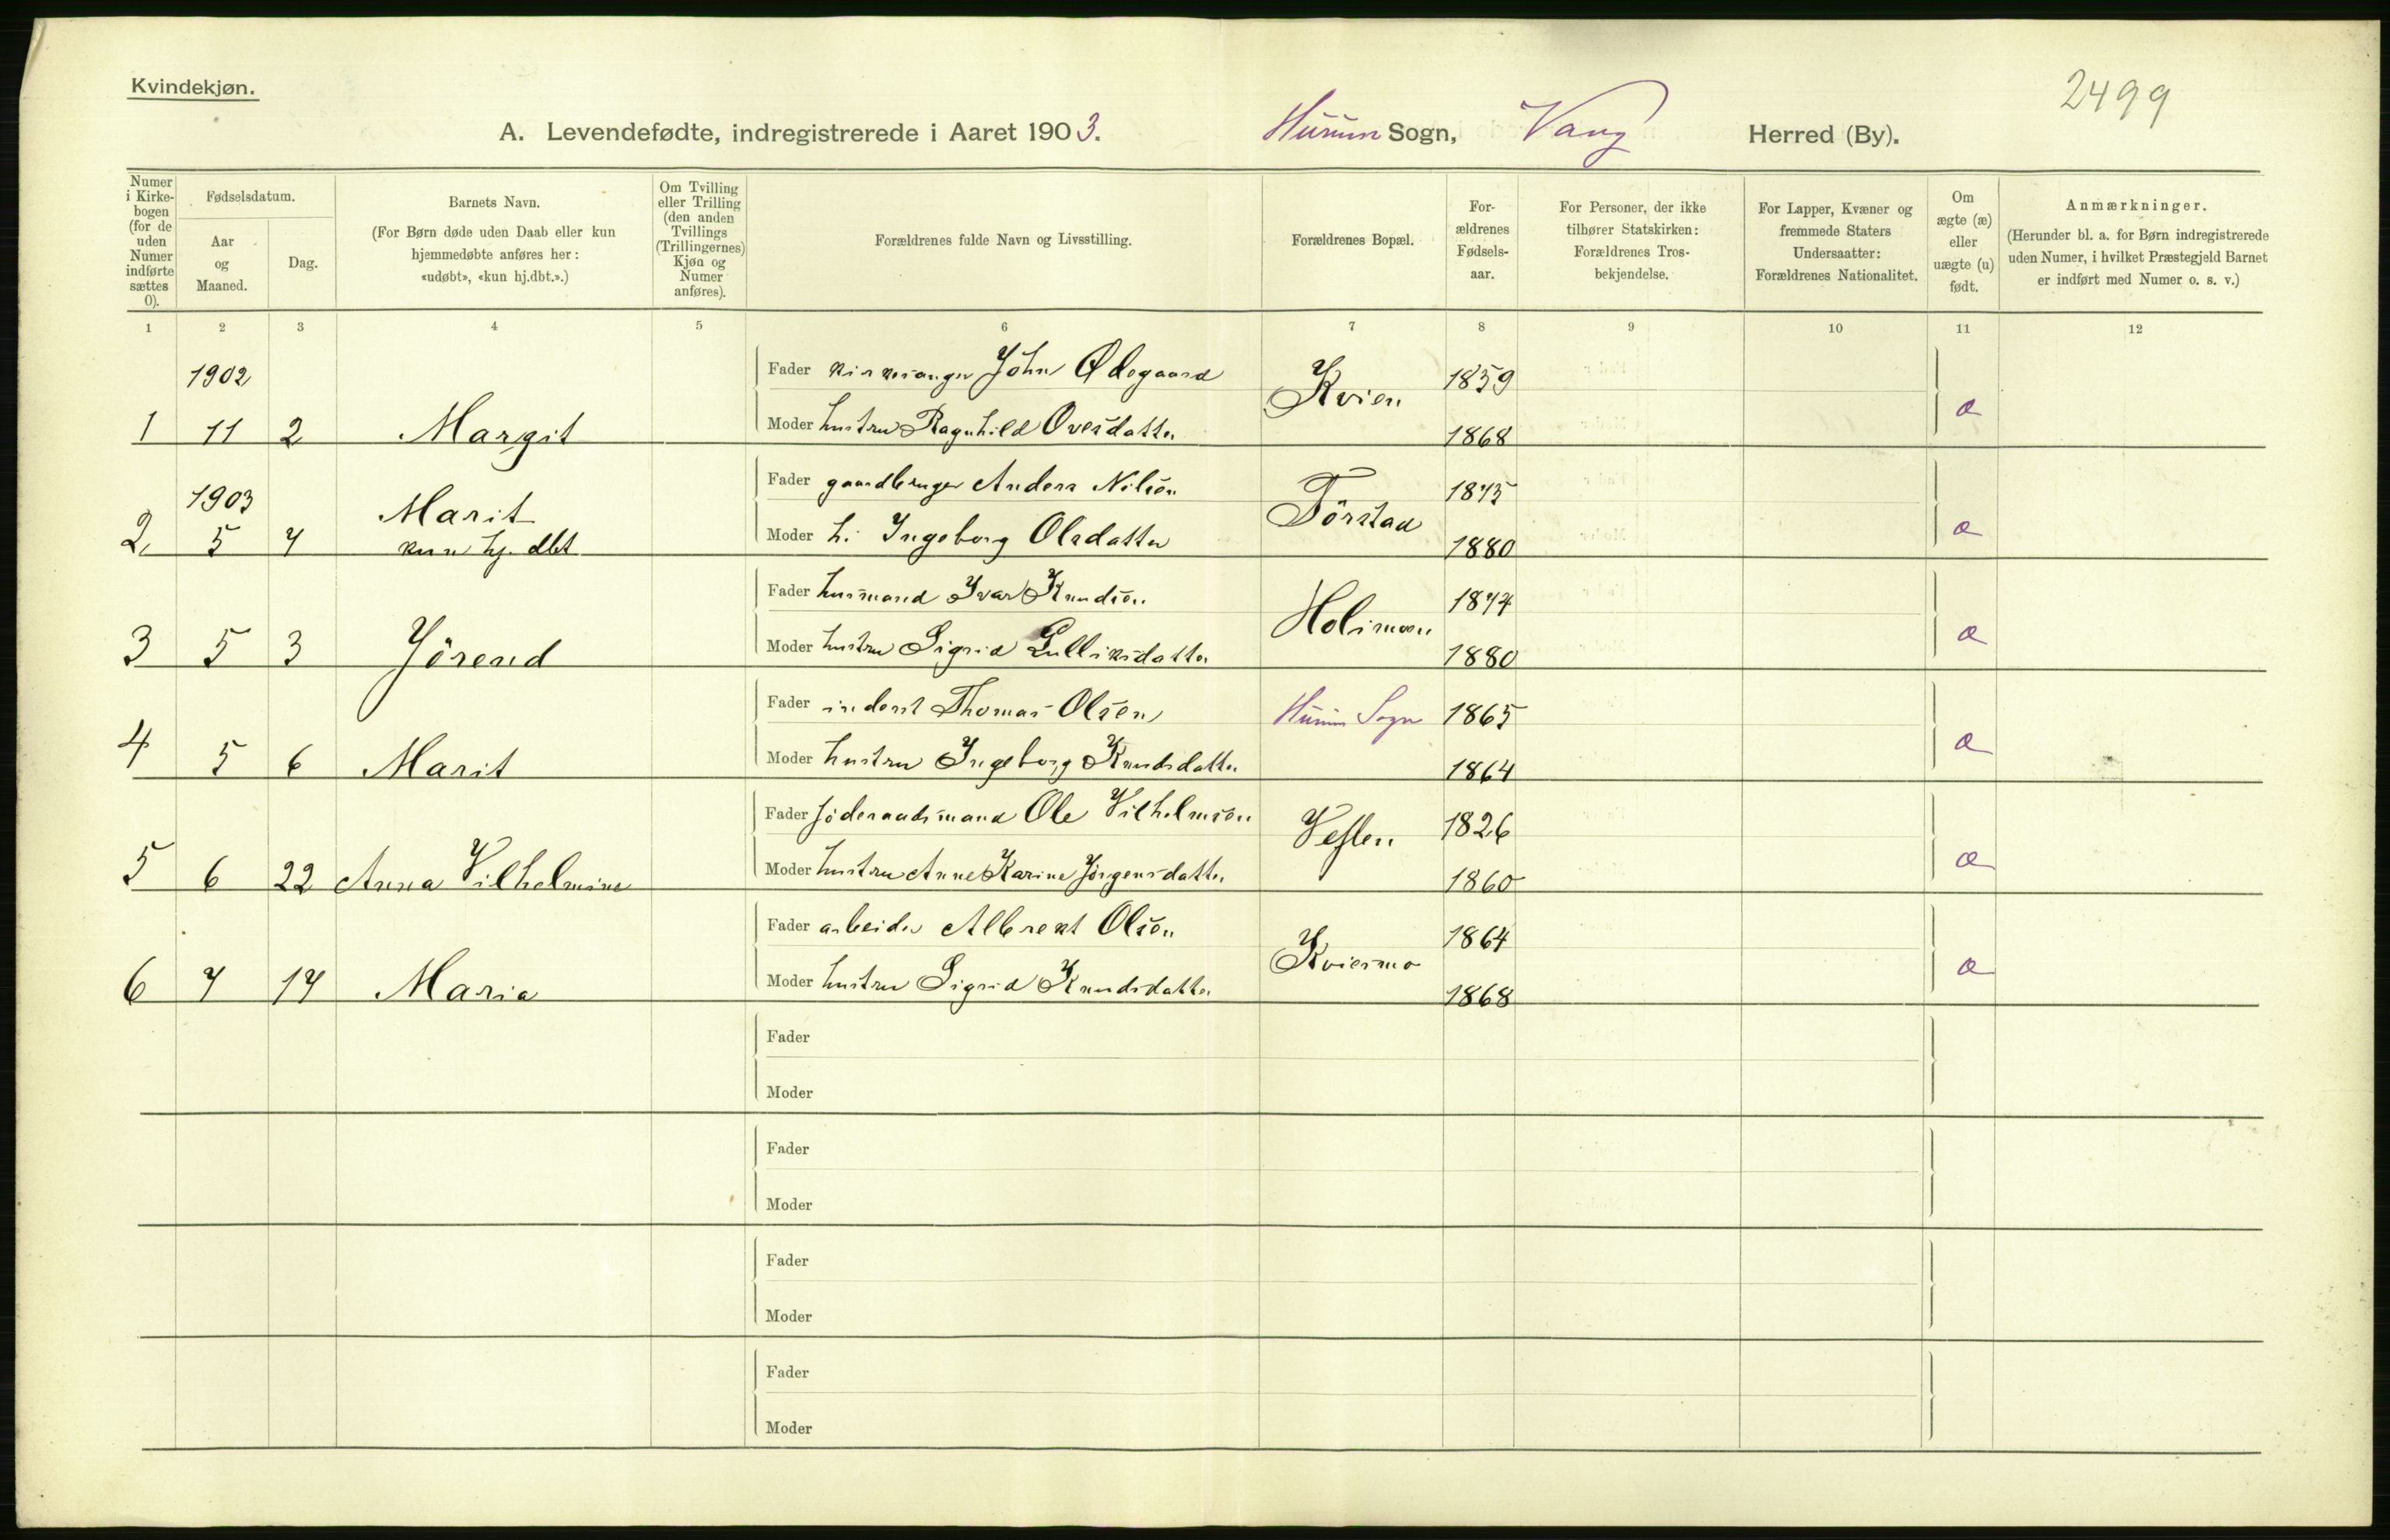 Kvindekjøn.
2499
A. Levendefødte, indregistrerede i Aaret 1903. Hurum Sogn, Vang Herred (By).
Numer i Kirkebogen (for de uden Numer indførte sættes 0).
Fødselsdatum.
Aar og Maaned.
Dag.
Barnets Navn.
(For Børn døde uden Daab eller kun hjemmedøbte anføres her: «udøbt», «kun hj.dbt.».)
Om Tvilling eller Trilling (den anden Tvillings (Trillingernes) Kjøn og Numer anføres).
Forældrenes fulde Navn og Livsstilling.
Forældrenes Bopæl.
Forældrenes Fødselsaar.
For Personer, der ikke tilhører Statskirken: Forældrenes Trosbekjendelse.
For Lapper, Kvæner og fremmede Staters Undersaatter: Forældrenes Nationalitet.
Om ægte (æ) eller uægte (u) født.
Anmærkninger.
(Herunder bl. a. for Børn indregistrerede uden Numer, i hvilket Præstegjeld Barnet er indført med Numer o. s. v.)
1 2 3 4 5 6 7 8 9 10 11 12
1902
Fader kirkesanger John Ødegaard Kvien 1859
1 11 2 Margit Moder hustru Ragnhild Ovesdatter 1868 æ
1903
Fader gaardbruger Anders Nilsen Törstad 1875
2, 5 7 Marit kun hj. dbt Moder h. Ingeborg Olsdatter 1880 æ
Fader husmand Ivar Knudsen Holimoen 1877
3 5 3 Jörend Moder hustru Sigrid Gulliksdatter 1880 æ
Fader inderst Thomas Olsen Hurum Sogn 1865
4 5 6 Marit Moder hustru Ingeborg Knudsdatter 1864 æ
Fader föderaadsmand Ole Vilhelmsen Veslen 1826
5 6 22 Anna Vilhelmine Moder hustru Anne Karine Jörgensdatter 1860 æ
Fader arbeider Albrekt Olsen Kviesmo 1864
6 7 17 Maria Moder hustru Sigrid Knudsdatter 1868 æ
Fader
Moder
Fader
Moder
Fader
Moder
Fader
Moder